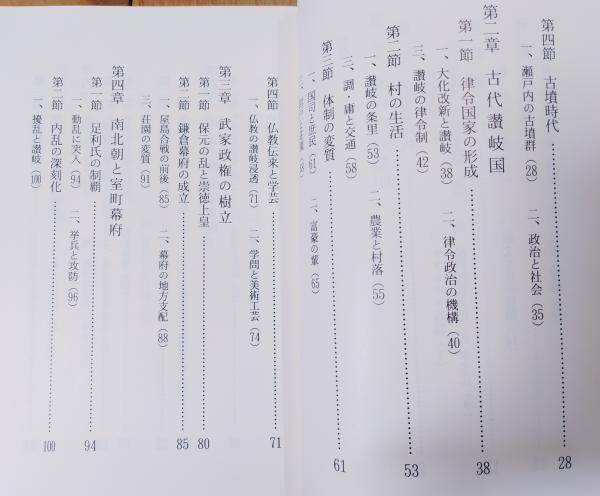 第四節 古墳時代 28
一、瀬戸内の古墳群 (28) 二、政治と社会 (35)
第二章 古代讃岐国
第一節 律令国家の形成 38
一、大化改新と讃岐 (38) 二、律令政治の機構 (40)
三、讃岐の律令制 (42)
第二節 村の生活 53
一、讃岐の条里 (53) 二、農業と村落 (55)
三、調・庸と交通 (58)
第三節 体制の変質 61
一、国司と庶民 (61) 二、富豪の輩 (65)
第四節 仏教伝来と学芸 71
一、仏教の讃岐浸透 (71) 二、学問と美術工芸 (74)
第三章 武家政権の樹立
第一節 保元の乱と崇徳上皇 80
第二節 鎌倉幕府の成立 85
一、屋島合戦の前後 (85) 二、幕府の地方支配 (88)
三、荘園の変質 (91)
第四章 南北朝と室町幕府
第一節 足利氏の制覇 94
一、動乱に突入 (94) 二、挙兵と攻防 (96)
第二節 内乱の深刻化 100
一、擾乱と讃岐 (100)